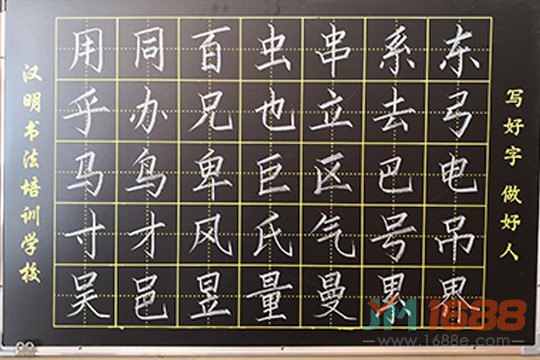 汉明书法培训学校
用同百虫串系东
乎办兄也立去弓
马鸟卑巨区巴电
寸才风氏气号吊
吴邑昱量曼累界
写好字 做好人
JM1688
www.1688e.com